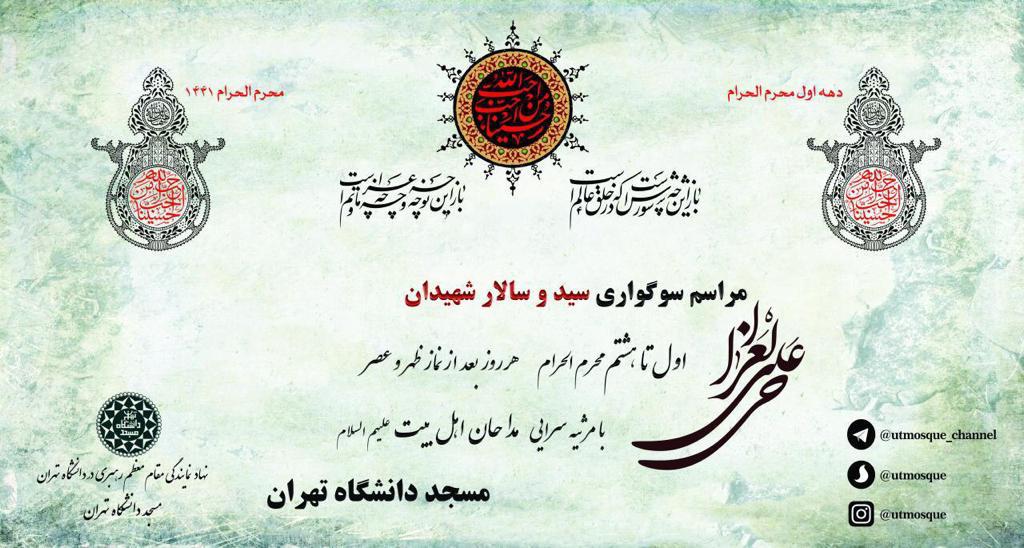 دهه اول محرم الحرام
محرم الحرام ۱۴۴۱
احب الله من احب حسینا
احب الله من احب الحسینا
احب الله من احب الحسینا
باز این چه شورش است که در خلق عالم است
باز این چه نوحه و چه عزا و چه ماتم است
مراسم سوگواری سید و سالار شهیدان
حی علی العزا
اول تا هشتم محرم الحرام هر روز بعد از نماز ظهر و عصر
با مرثیه سرایی مداحان اهل بیت علیهم السلام
مسجد دانشگاه تهران
مسجد دانشگاه تهران
نهاد نمایندگی مقام معظم رهبری در دانشگاه تهران
مسجد دانشگاه تهران
@utmosque_channel
@utmosque
@utmosque